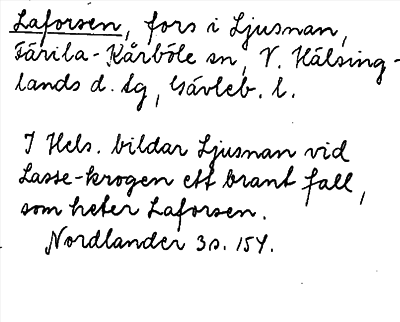 Laforsen, fors i Ljusnan,
Färila-Kårböle sn, V. Hälsing-
lands d. tg, Gävleb. l.
I Hels. bildar Ljusnan vid
Lasse-krogen ett brant fall,
som heter Laforsen.
Nordlander 3 s. 154.